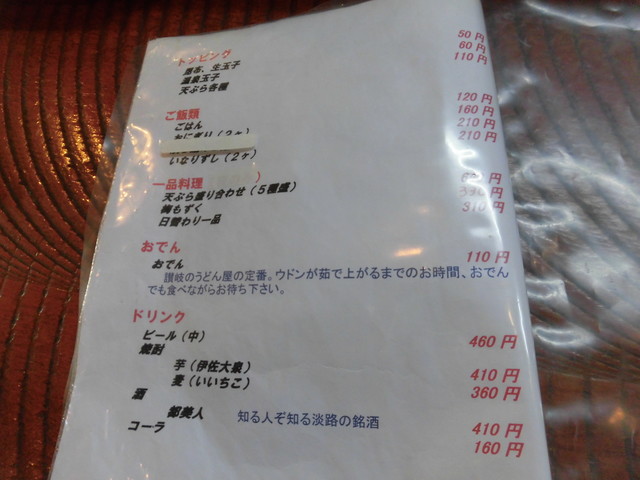 トッピング
昆布、生玉子 50 円
温泉玉子 60 円
天ぷら各種 110 円
ご飯類
ごはん 120 円
おにぎり（２ヶ） 160 円
210 円
いなりずし（２ヶ） 210 円
一品料理
天ぷら盛り合わせ（５種盛） 円
梅もずく 円
日替わり一品 310 円
おでん
おでん 110 円
讃岐のうどん屋の定番。ウドンが茹で上がるまでのお時間、おでん
でも食べながらお待ち下さい。
ドリンク
ビール（中） 460 円
焼酎
芋（伊佐大泉） 410 円
麦（いいちこ） 360 円
酒
都美人 知る人ぞ知る淡路の銘酒 410 円
コーラ 160 円